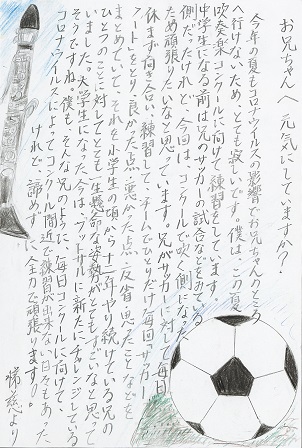 お兄ちゃんへ 元気にしていますか?
今年の夏もコロナウイルスの影響でお兄ちゃんのところ
へ行けないため、とても寂しいです。僕は、この夏
吹奏楽コンクールに向けて練習をしています。
中学生になる前は兄のサッカーの試合などをみている
側だったけれど、今回は、コンクールで吹く側になった
ため頑張りたいなと思っています。兄がサッカーに対して毎日
休まず向き合い、練習して、チームでひとりだけ毎回「サッカー
ノート」をとり、良かった点・悪かった点・反省・思ったことなどを
まとめていて、それを小学生の頃から十二年やり続けている兄の
ひとつのことに対してとても一生懸命な姿勢がとてもすごいなと思って
いました。大学生になった今は、フットサルに新たにチャレンジしている
そうですね。僕も、そんな兄のように、毎日コンクールに向けて、
コロナウイルスによってコンクール間近で練習が出来ない日々もあった
けれど、諦めずに全力で頑張ります!。
より